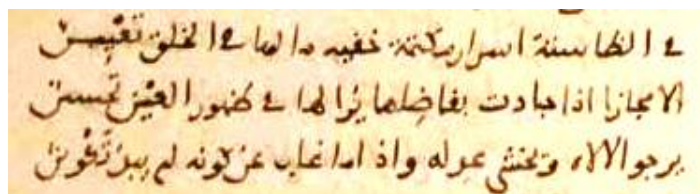 في الظا ستة اسرار مكتمة خفيه مالها في الخلق تعيين
الا مجازا اذا جادت بفاضلها يرا لها في ظهور العين تحسين
يرجو الاله ويخشى عدله واذا ما غاب عن كونه لم يبد تكوين